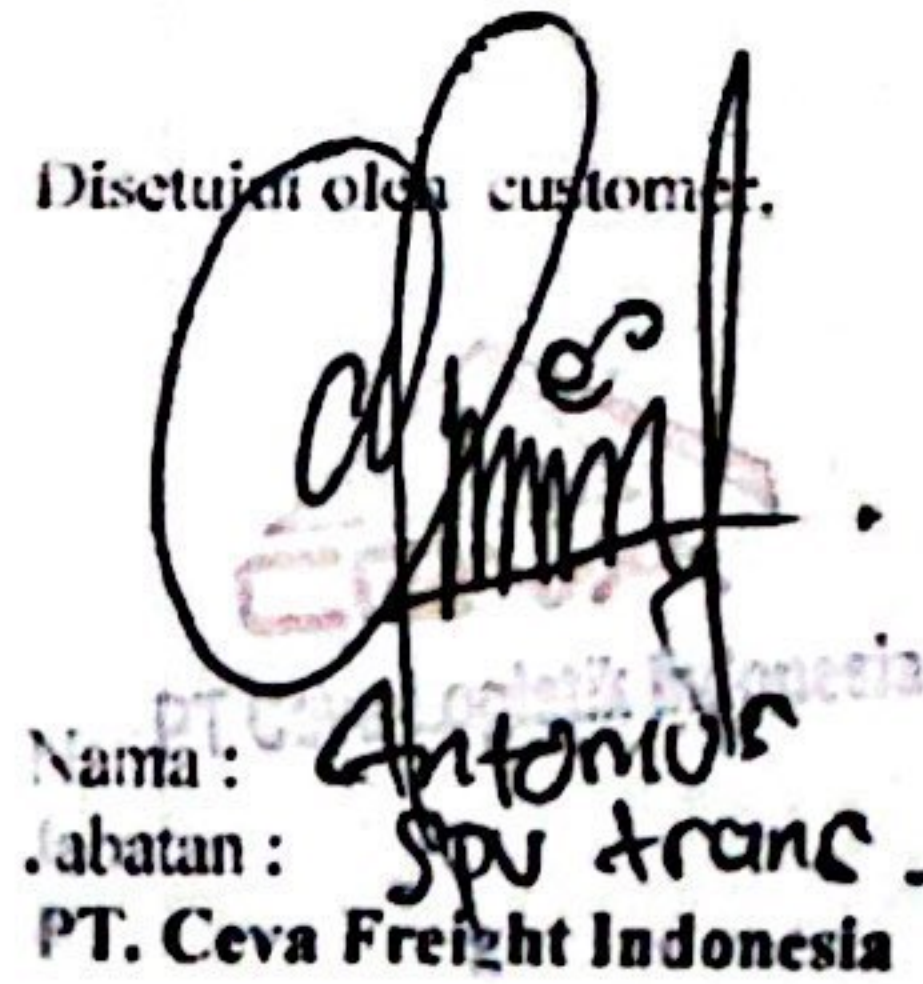 Disetujui oleh customer,
CEVA
PT Ceva Logistik Indonesia
Nama : Antonius
Jabatan : Spv trans.
PT. Ceva Freight Indonesia